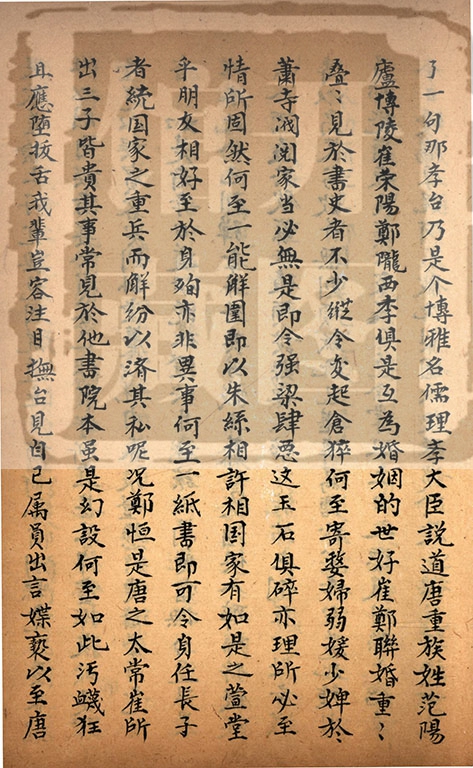 了一句那孝台乃是个博雅名儒理孝大臣説道唐重族姓范陽
盧博陵崔荣陽鄭隴西李俱是互為婚姻的世好崔鄭聯婚重〻
叠〻見於書史者不少縱令变起倉猝何至寄嫠婦弱媛少婢於
蕭寺阀阅家当必無是即令强梁肆恶这玉石俱碎亦理所必至
情所固然何至一能觧圍即以朱絲相許相国家有如是之萱堂
乎朋友相好至於身殉亦非異事何至一紙書即可令身任長子
者統国家之重兵而觧紛以济其私呢况鄭恒是唐之太常崔所
出三子皆貴其事常見於他書院本虽是幻設何至如此污衊狂
且應墮拔舌我輩豈容注目撫台見自己属員出言媟亵以至唐